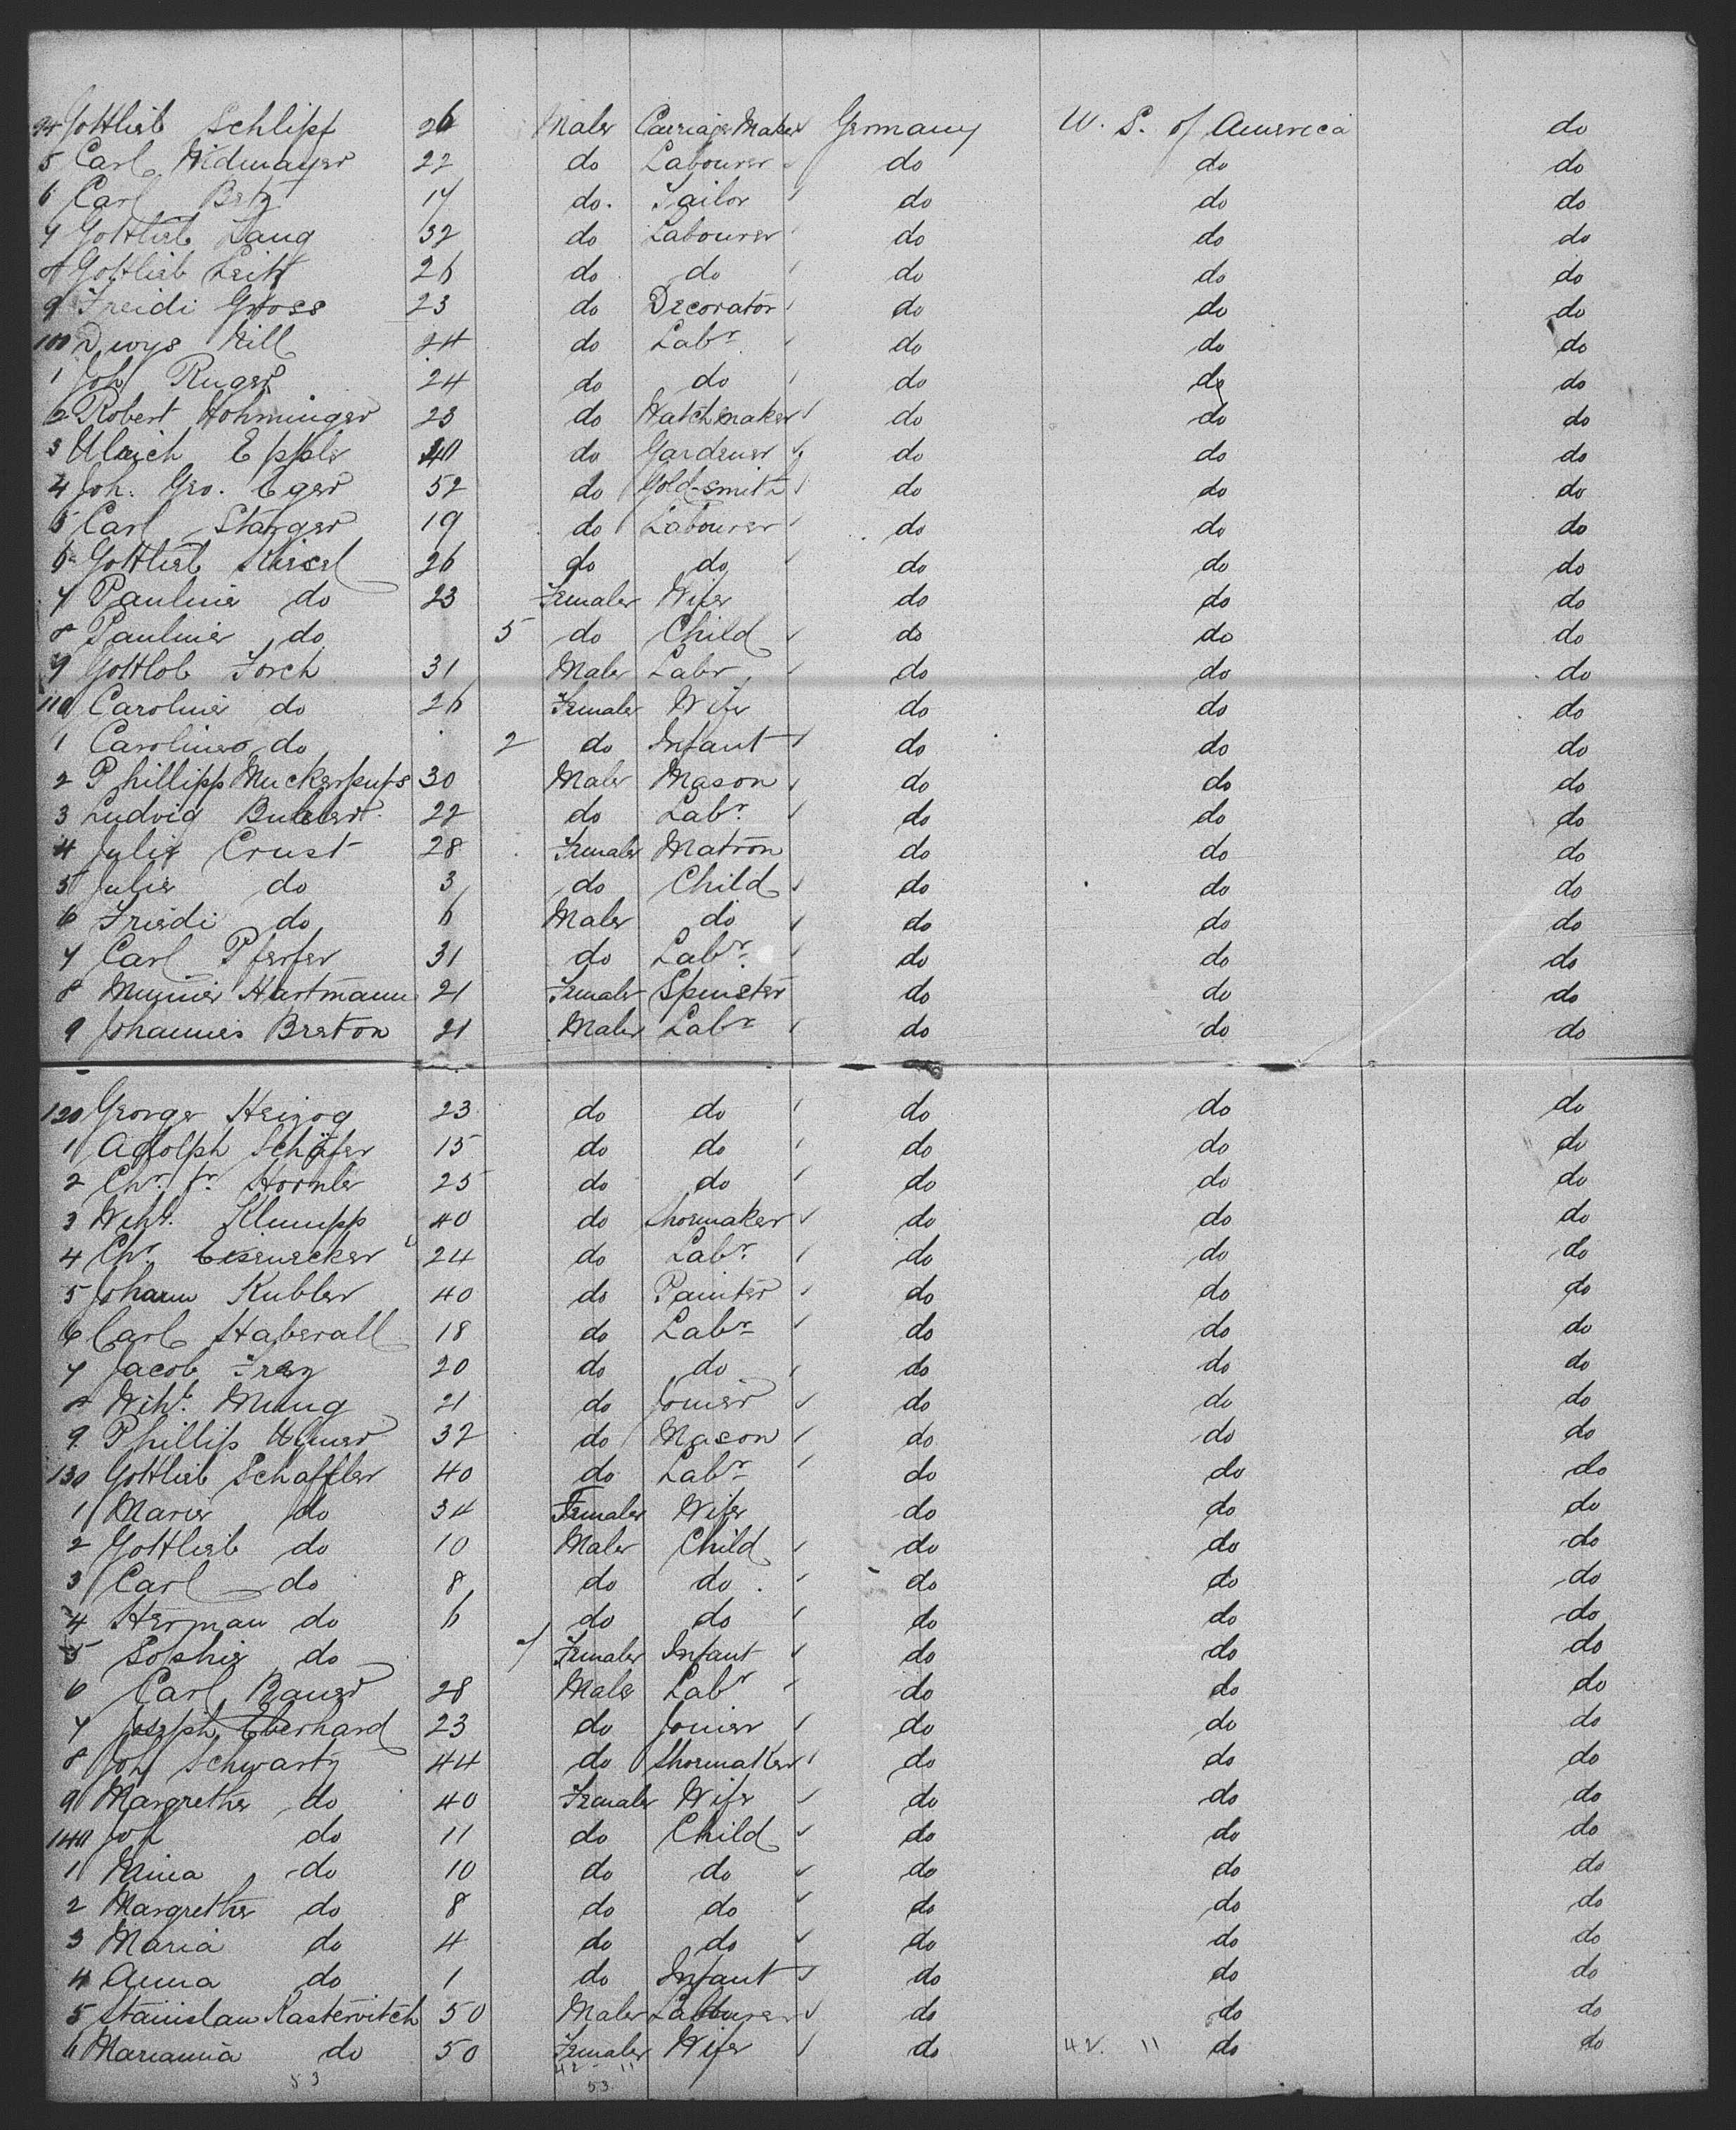 94 Gottlieb Schlipf 26 Male Carriage Maker Germany U. S. of America do
5 Carl Widmayer 22 do Labourer do do do
6 Carl Betz 17 do. Tailor do do do
7 Gottlieb Lang 32 do Labourer do do do
8 Gottlieb 26 do do do do do
9 Freidi Gross 23 do Decorator do do do
100 Hill 24 do Labr do do do
1 Joh Ruger 24 do do do do do
2 Robert Hohminger 23 do Watchmaker do do do
3 Ulrich Epple 40 do Gardener do do do
4 Joh. Geo. Eger 52 do Gold-smith do do do
5 Carl Stanger 19 do Labourer do do do
6 Gottlieb 26 do do do do do
7 Pauline do 23 Female Wife do do do
8 Pauline do 5 do Child do do do
9 Gottlob Forch 31 Male Labr do do do
110 Caroline do 26 Female Wife do do do
1 Caroline do 2 do Infant do do do
2 Phillipp Muckerpups 30 Male Mason do do do
3 Ludvig 22 do Labr. do do do
4 Julie Crust 28 Female Matron do do do
5 Julie do 3 do Child do do do
6 Friedi do 6 Male do do do do
7 Carl Pferfer 31 do Labr. do do do
8 Minnie Hartmann 21 Female Spinster do do do
9 Johannes Breton 21 Male Labr do do do
120 George Heizog 23 do do do do do
1 Adolph Schäfer 15 do do do do do
2 Chr. Fr. Hornle 25 do do do do do
3 Wilh. Klumpp 40 do Shoemaker do do do
4 Chr. Eisenecker 24 do Labr. do do do
5 Johann Kubler 40 do Painter do do do
6 Carl Haberall 18 do Labr do do do
7 Jacob Frey 20 do do do do do
8 Wilh. Mung 21 do Joiner do do do
9 Phillip Ulmer 32 do Mason do do do
130 Gottlieb Schaffler 40 do Labr do do do
1 Marie do 34 Female Wife do do do
2 Gottlieb do 10 Male Child do do do
3 Carl do 8 do do do do do
4 Herman do 6 do do do do do
5 Sophie do 7 Female Infant do do do
6 Carl Bauer 28 Male Labr do do do
7 Joseph Eberhard 23 do Joiner do do do
8 Joh Schwartz 44 do Shoemaker do do do
9 Margrethe do 40 Female Wife do do do
140 Joh do 11 do Child do do do
1 Mina do 10 do do do do do
2 Margrethe do 8 do do do do do
3 Maria do 4 do do do do do
4 Anna do 1 do Infant do do do
5 Stanislaw Kastervitch 50 Male Labourer do do do
6 Marianna do 50 Female Wife do 42. 11 do do
53 42 - 11
53